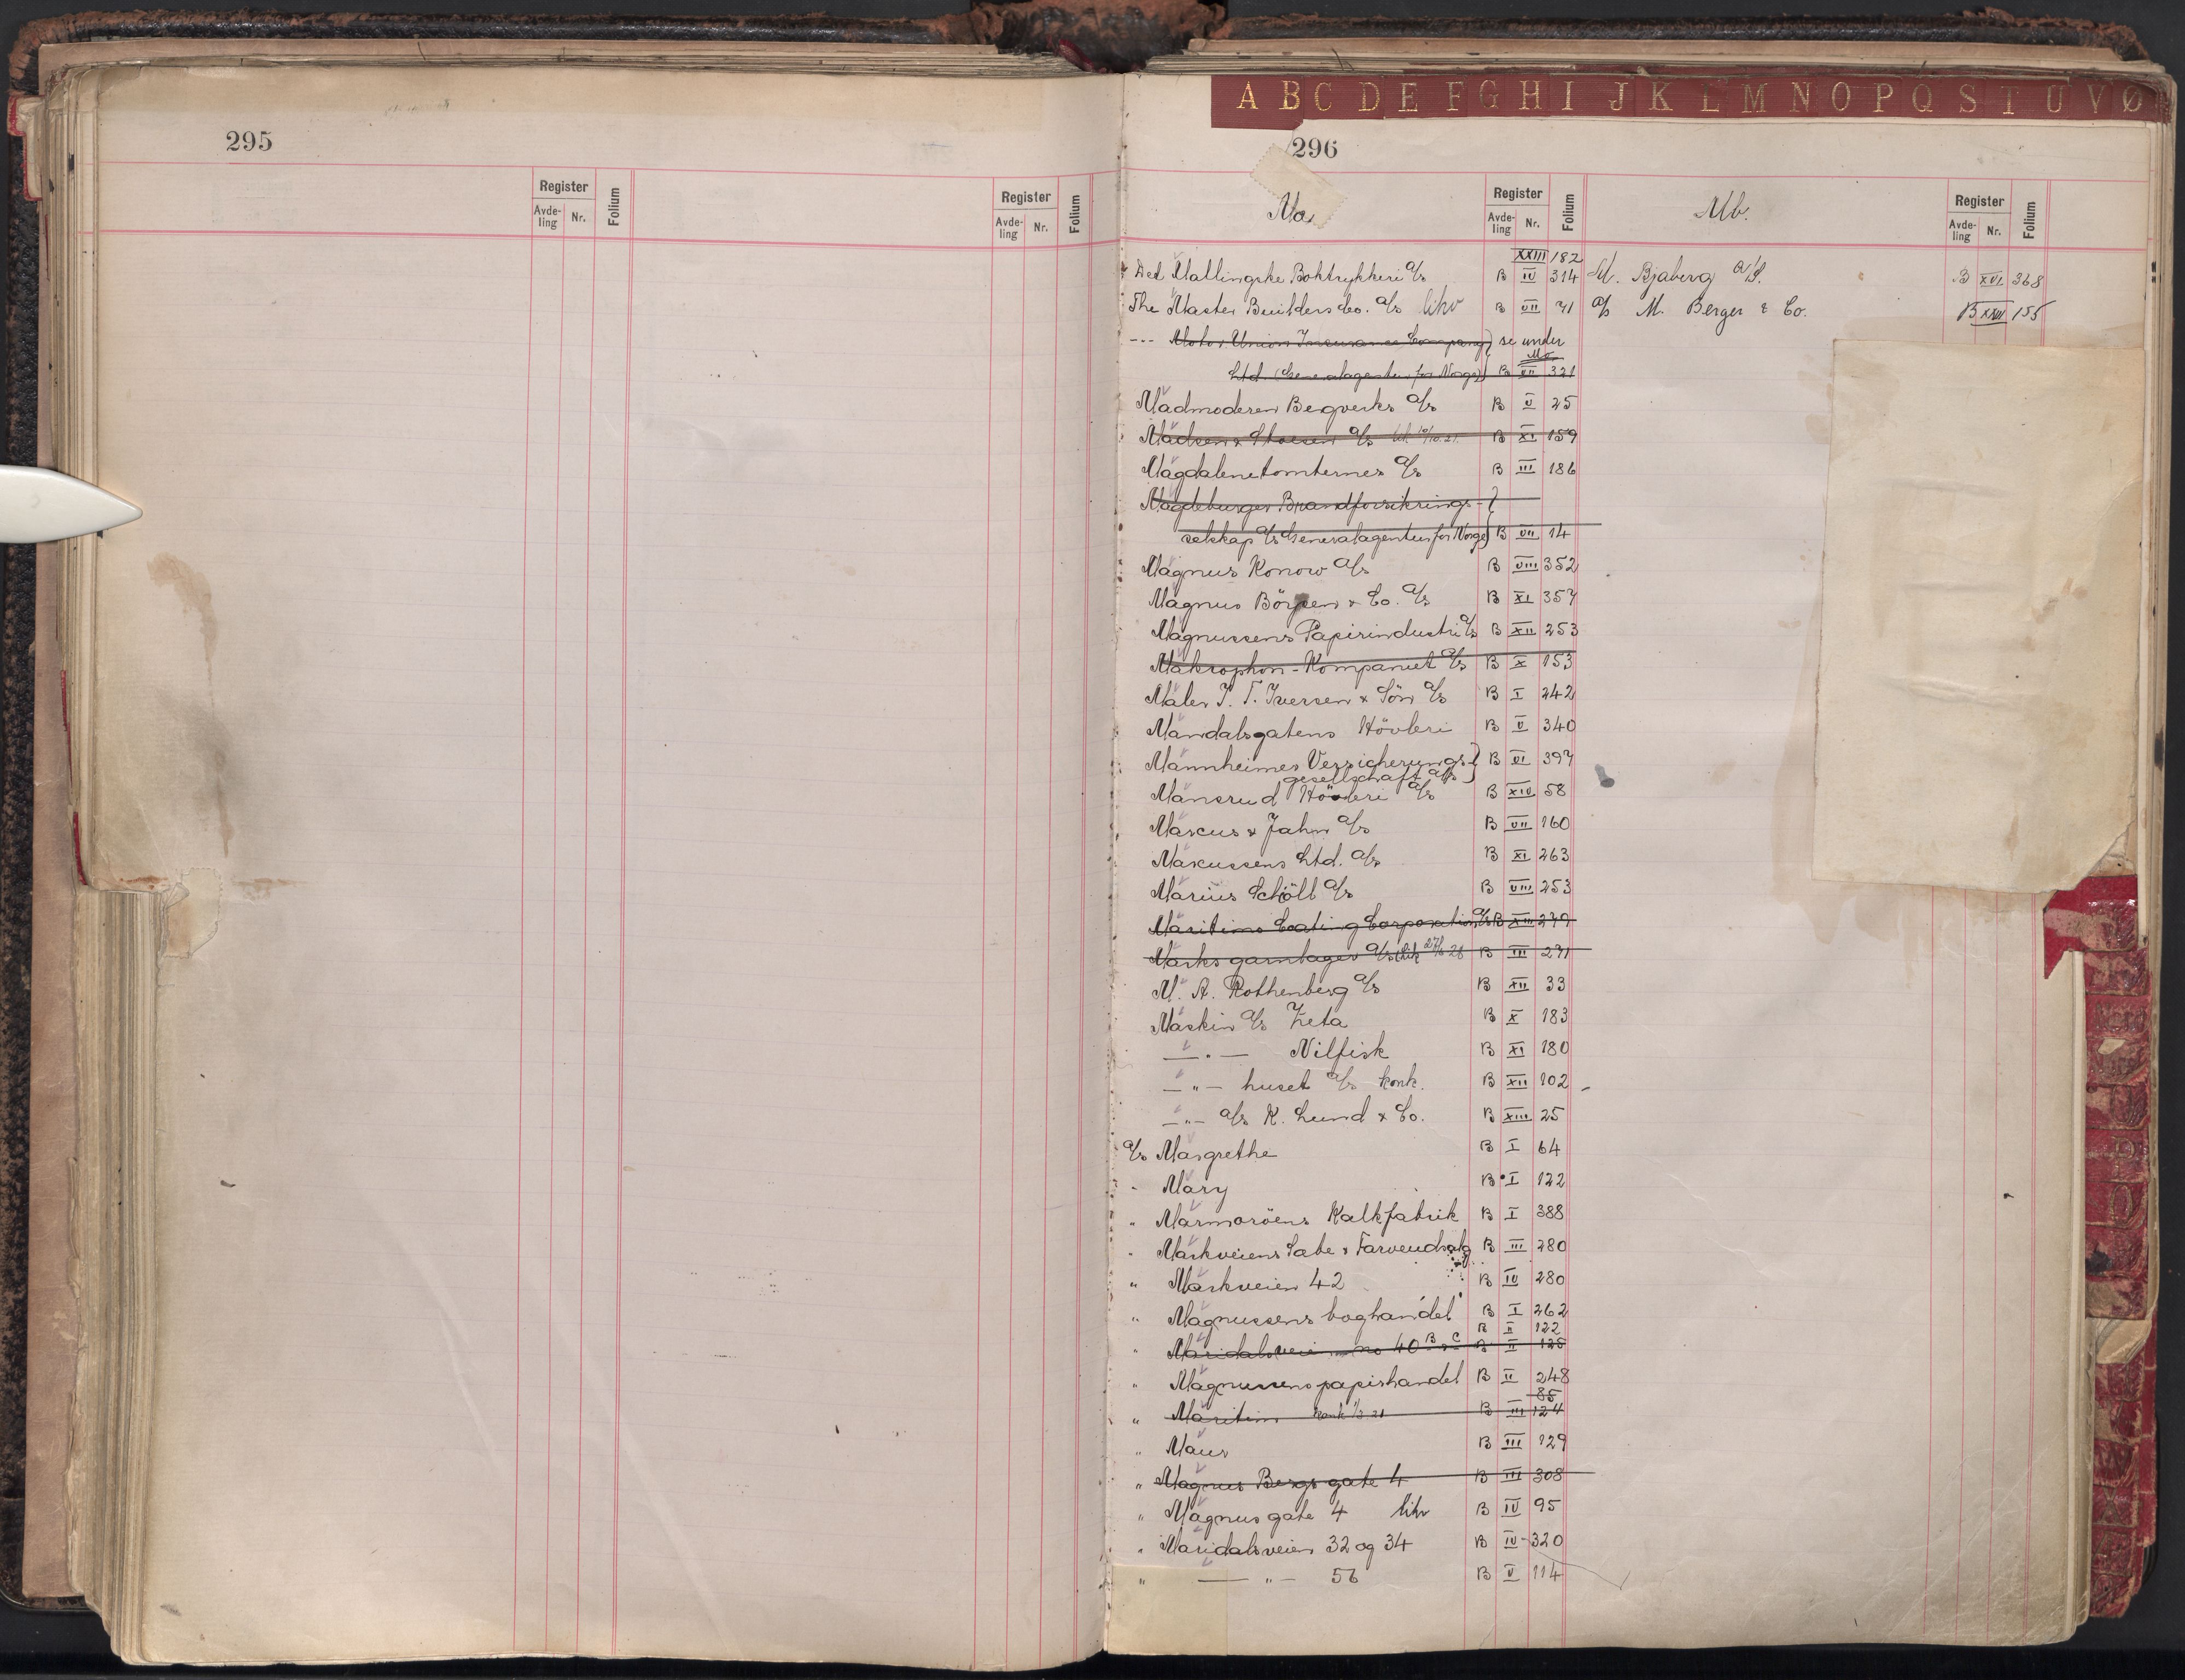 A B C D E F G H I J K L M N O P Q S T U V Ø
295
Register
Avde-ling Nr. Folium
Register
Avde-ling Nr. Folium
296
Ma.
Register
Avde-ling Nr. Folium
XXIII 182
Det Mallingske Boktrykkeri A/s B IV 314
The Master Builders Co. A/s likv B VII 71
--- Motor Union Insurance Company } se under Mo
Ltd. (Generalagentur for Norge) B VII 321
Madmoderen Bergverks A/s B V 25
Madsen & A/s B XI 159
Magdalenetomternes A/s B III 186
Magdeburger Brandforsikrings- }
selskap A/s Generalagentur for Norge) B VII 14
Magnus Konow A/s B VIII 352
Magnus Börresen & Co. A/s B XI 357
Magnussens Papirindustri A/s B XII 253
Makrophon-Kompaniet A/s B X 153
Maler J. F. Iversen & Sön A/s B I 242
Mandalsgatens Hövleri B V 340
Mannheimer Versicherungs- } B VI 397
gesellschaft A/s
Mansrud Hövleri A/s B XIV 58
Marcus & Jahn A/s B VII 160
Marcussens Ltd. A/s B XI 263
Marius Schöll A/s B VIII 253
Maritime Coating Corporation A/s B XIII 279
Marks garnlager A/s B III 271
M. A. Rothenberg A/s B XII 33
Maskin A/s Zeta B X 183
— " — Nilfisk B XI 180
— " — huset A/s konk. B XII 102
— " — A/s K. Lund & Co. B XIII 25
A/s Margrethe B I 64
- Mary B I 122
" Marmoröens Kalkfabrik B I 388
- Markveiens Sæbe & Farveudsalg B III 280
" Markveien 42 B IV 280
" Magnussens boghandel B I 262
B II 122
" Maridalsveien no 40 B & C B II 125
" Magnussens papirhandel B II 248
85
" Maritim konk 1/2 21 B III 124
" Maur B III 129
" Magnus Bergs gate 4 B III 308
" Magnus gate 4 likv B IV 95
" Maridalsveien 32 og 34 B IV 320
" — " — 56 B V 114
Mb.
Register
Avde-ling Nr. Folium
M. Bjaberg A/S. B XVI 368
A/s M. Berger & Co. B XXIII 155